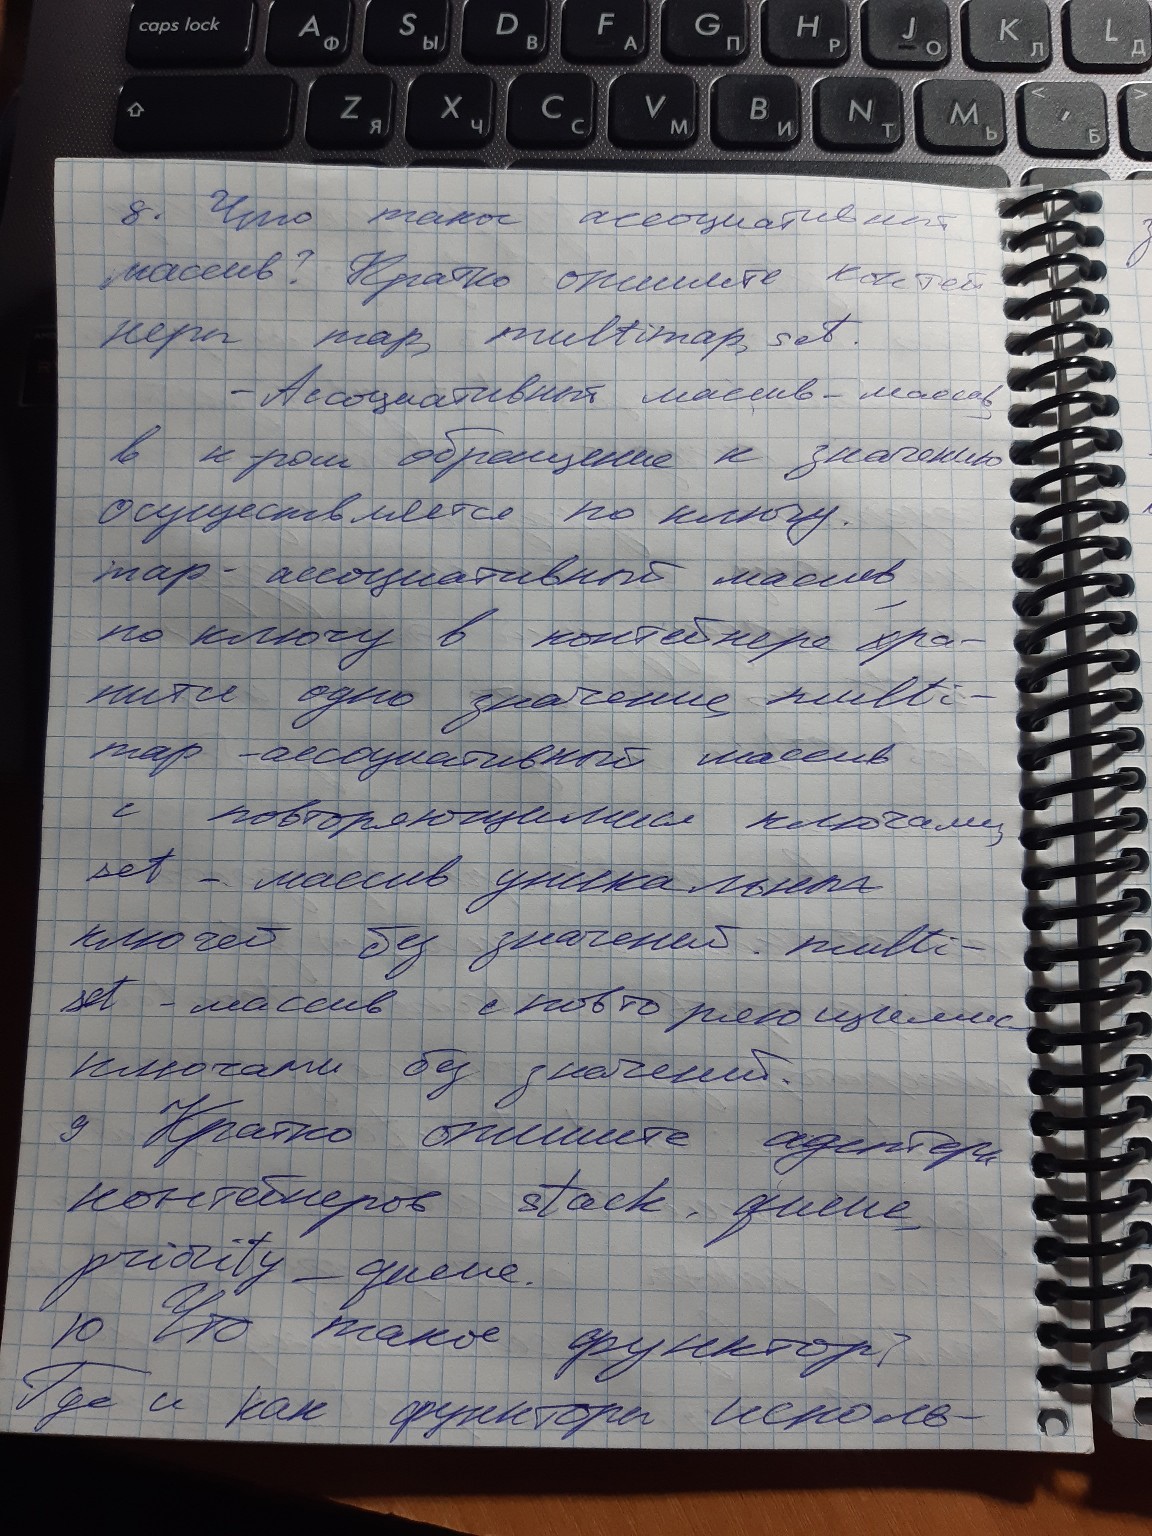 caps lock A Ф S Ы D В F А G П H Р J О K Л L Д
Z Я X Ч C С V М B И N Т M Ь < , Б >
8. Что такое ассоциативный
массив? Кратко опишите контей
неры map, multimap, set.
- Ассоциативный массив - массив,
в к-ром обращение к значению
осуществляется по ключу.
map - ассоциативный массив,
по ключу в контейнере хра-
нится одно значение, multi-
map - ассоциативный массив
с повторяющимися ключами,
set - массив уникальных
ключей без значений. multi-
set - массив с повторяющимися
ключами без значений.
9 Кратко опишите адаптеры
контейнеров stack, queue,
priority_queue.
10 Что такое функтор?
Где и как функторы исполь-